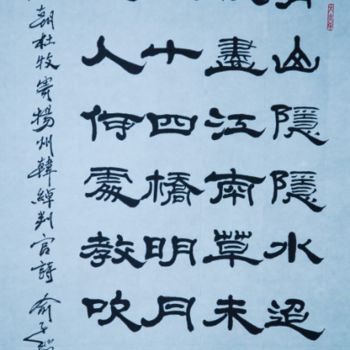 山隱隱水迢
盡江南草未
十四橋明月
人何處教吹
朝杜牧寄揚州韓綽判官詩 俞子